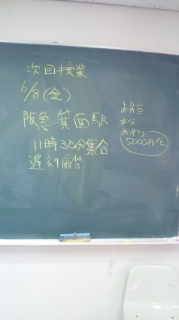 次回授業
6/8(金)
阪急 箕面駅
11時30分集合
遅刻厳禁
お弁当
水分
5000円位